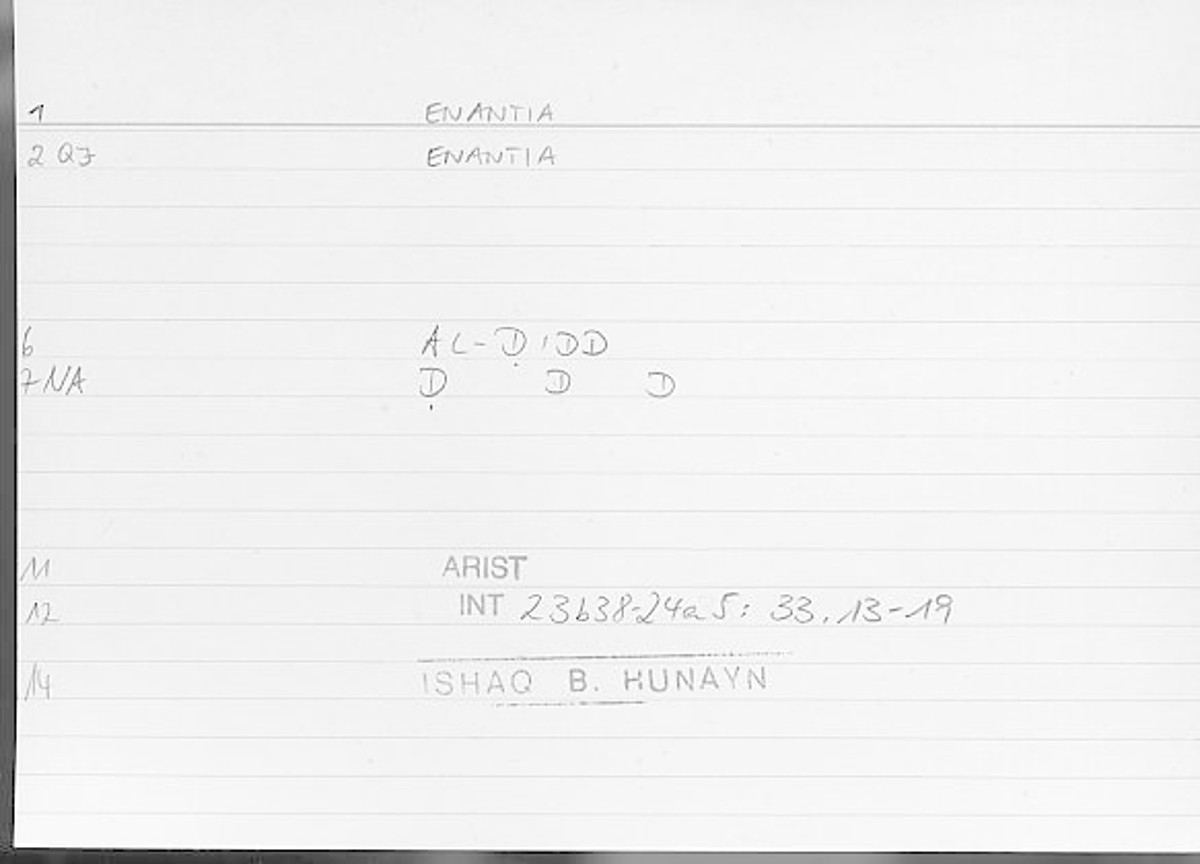 1 ENANTIA
2 QF ENANTIA
6 AL-ḌIDD
7 NA Ḍ D D
11 ARIST
12 INT 23b38-24a5: 33.13-19
14 ISHAQ B. HUNAYN